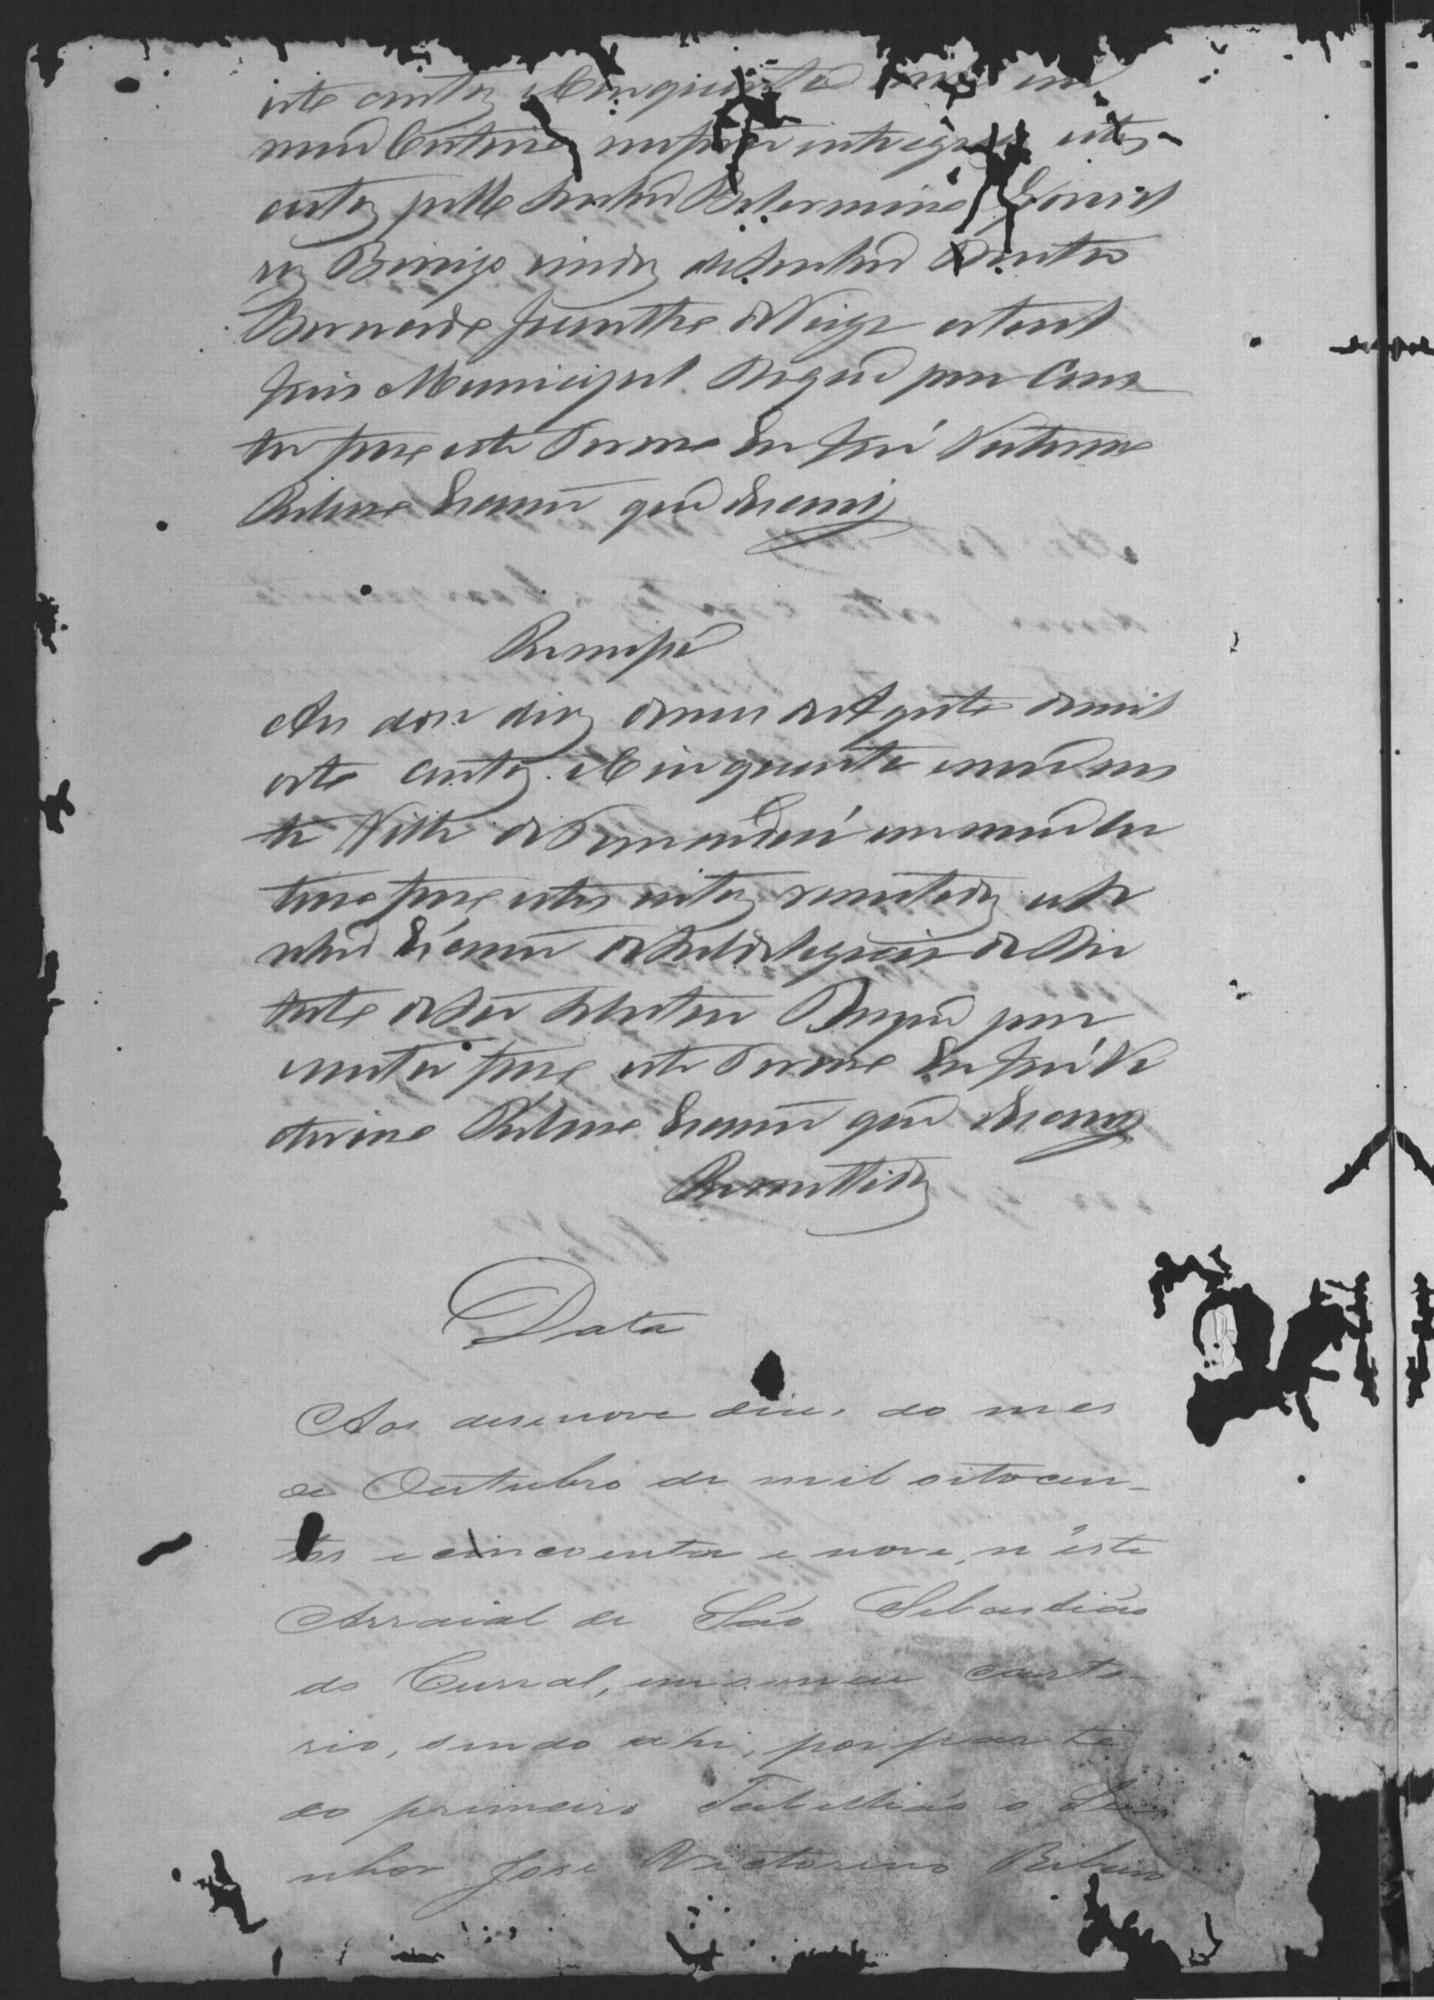 oito centos e Cincoenta
meu Cartorio me forão entregues estes
autos pello Senhor
vindos do Senhor Doutor
Bernardo Jacintho da Veiga actual
Juis Municipal do que para Cons
tar fase este Termo Eu José Victorino
Ribeiro Escrivão que escrevy
Remessa
Aos dose dias do mes de Agosto de mil
oito centos e Cincoenta e nove nes
ta Villa de Tamanduá em meu Car
torio faso estes autos remetidos ao Se
nhor Escrivão da Subdelegacia do Dis
tricto de São Sebastião Do que para
constar fase este Termo Eu José Vi
ctorino Ribeiro Escrivão que escrevy
Remettidos
Data
Aos desenove dias do mes
de Outubro de mil oitocen-
tos e cincoenta e nove, n'este
Arraial de São Sebastião
do Curral, em o meu carto-
rio, sendo ahi, por parte
do primeiro Tabellião o Se
nhor José Victorino Ribeiro